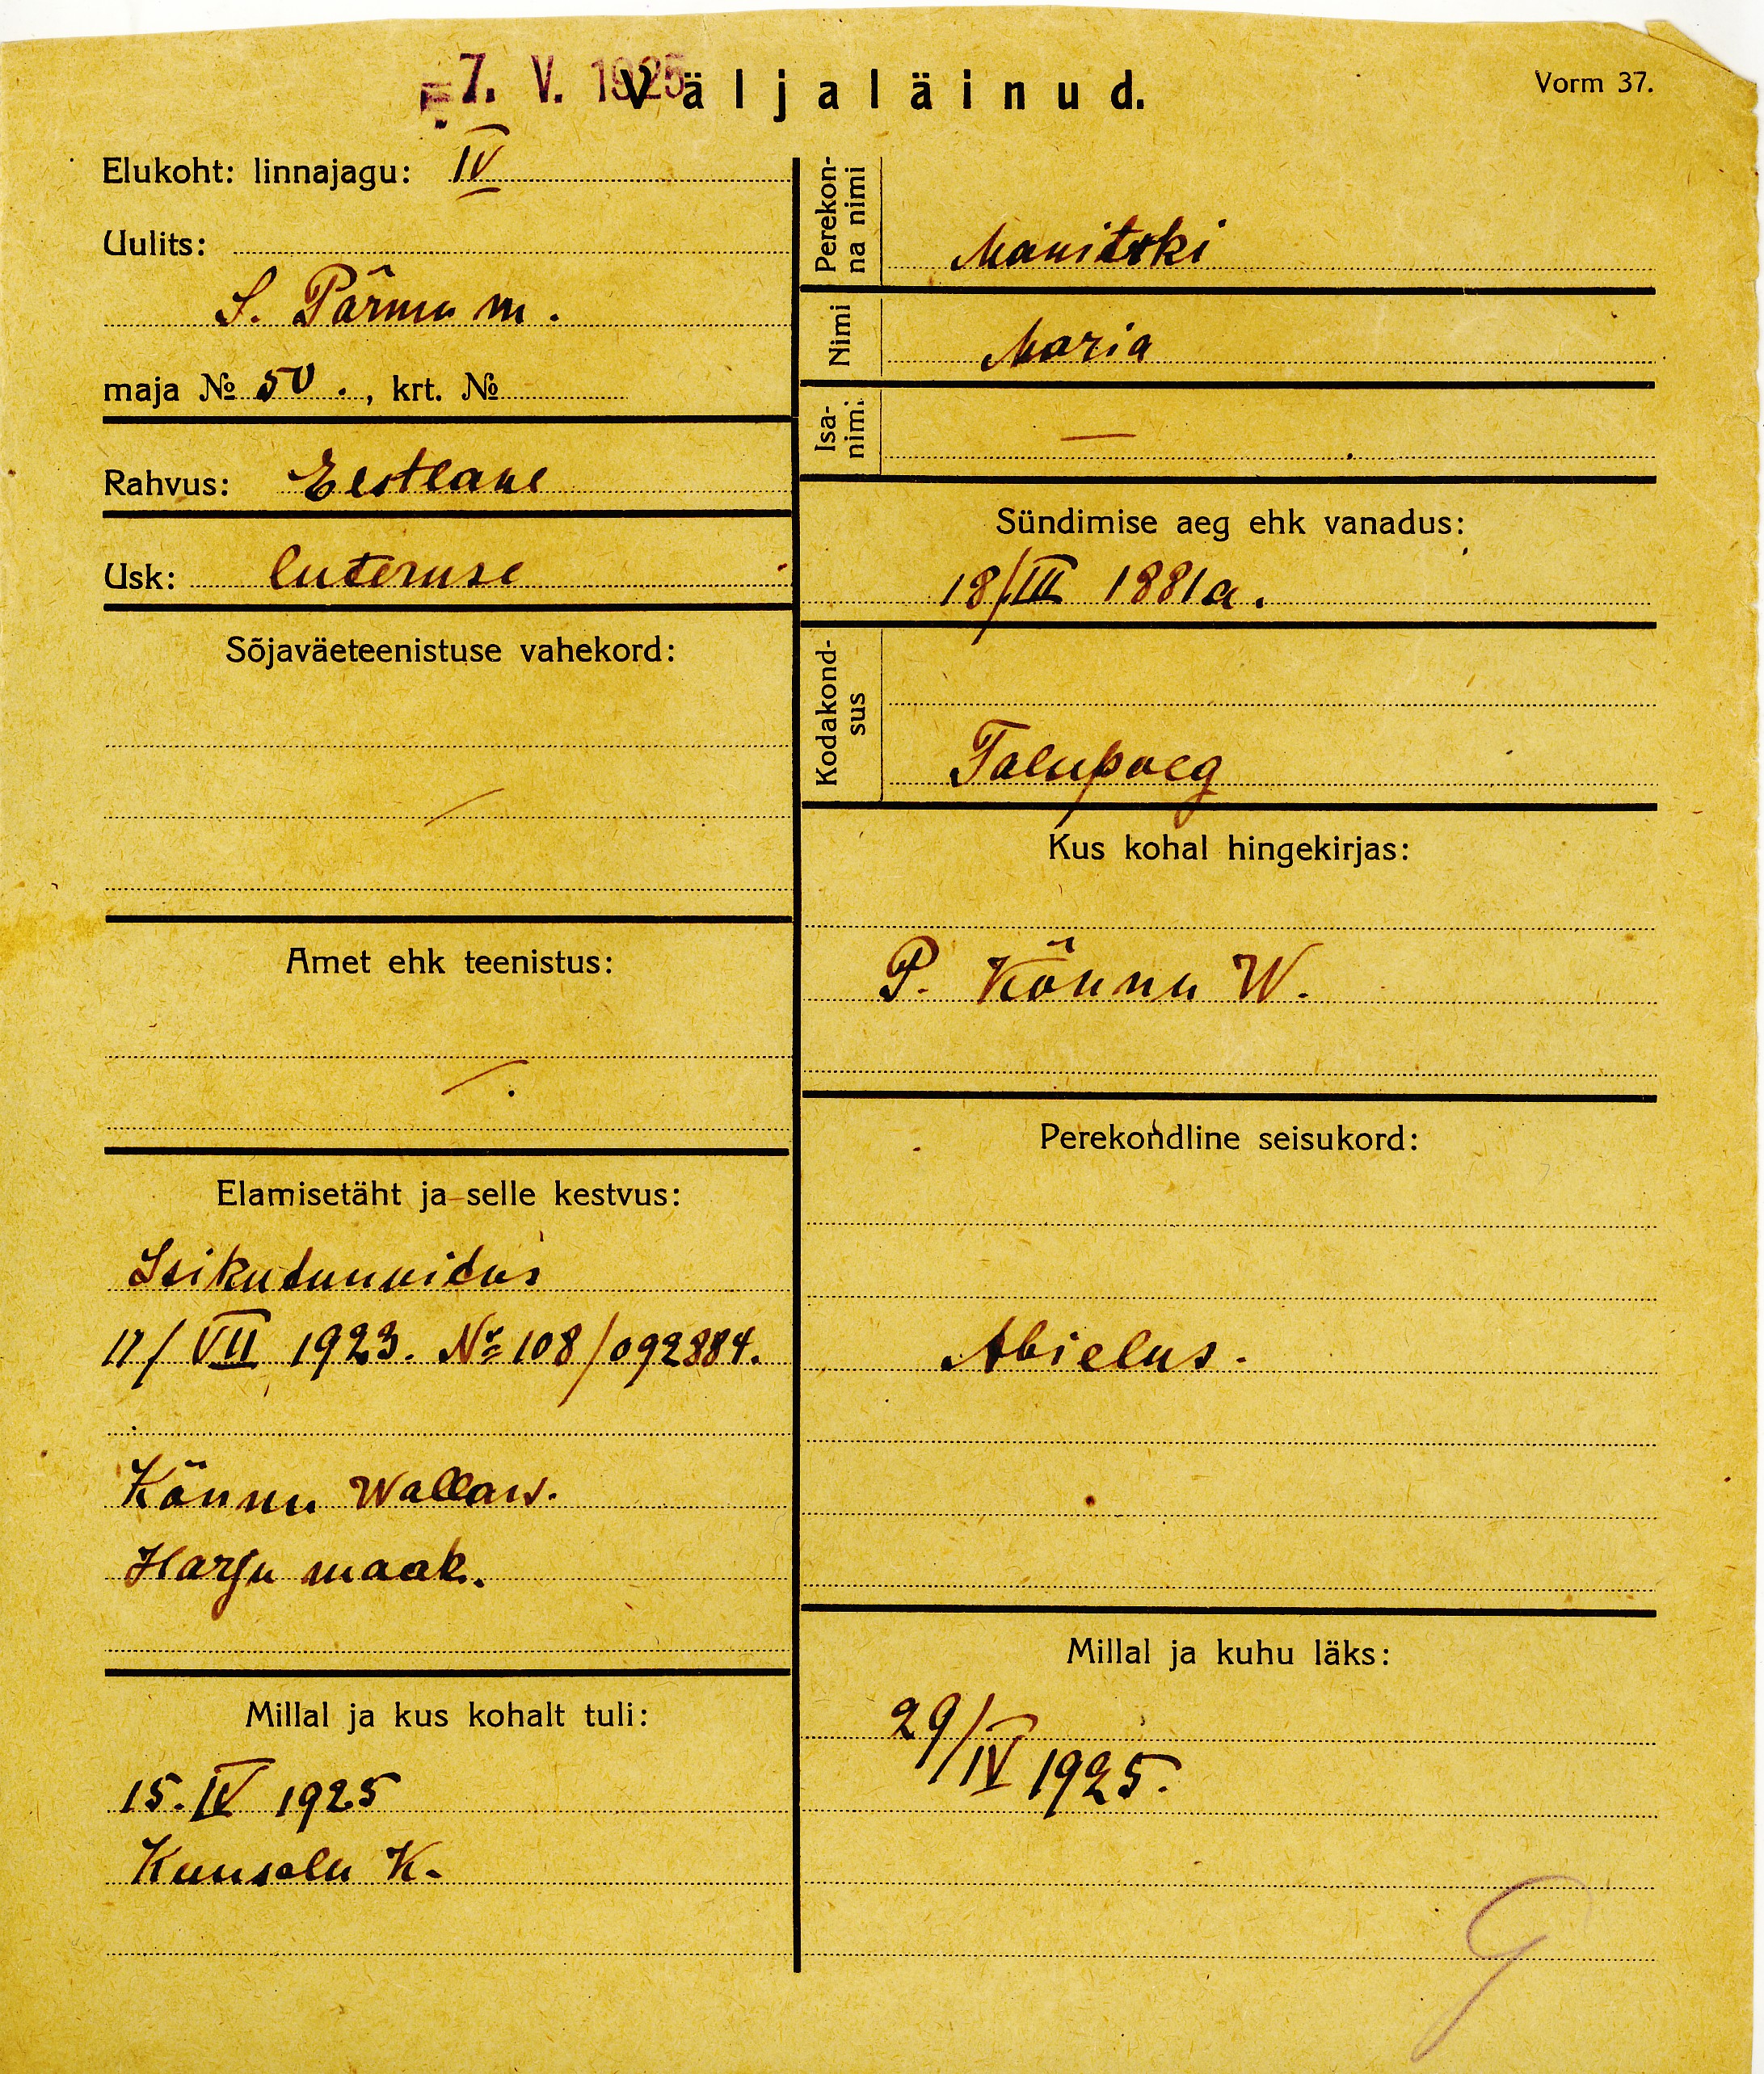 7. V. 1925
Väljaläinud.
Vorm 37.
Elukoht: linnajagu: IV
Uulits:
S. Pärnu m.
maja № 50., krt. №
Rahvus: Eestlane
Usk: luteruse
Sõjaväeteenistuse vahekord:
—
Amet ehk teenistus:
—.
Elamisetäht ja selle kestvus:
Isikutunnistus
11/VII 1923. № 108/092884.
Kõnnu Wallaw.
Harju maak.
Millal ja kus kohalt tuli:
15. IV 1925
Kuusalu K.
Perekon-
na nimi
Manitski
Nimi
Maria
Isa-
nimi
—
Sündimise aeg ehk vanadus:
18/III 1881a.
Kodakond-
sus
Talupoeg
Kus kohal hingekirjas:
P. Kõnnu W.
Perekondline seisukord:
Abielus.
Millal ja kuhu läks:
29/IV 1925.